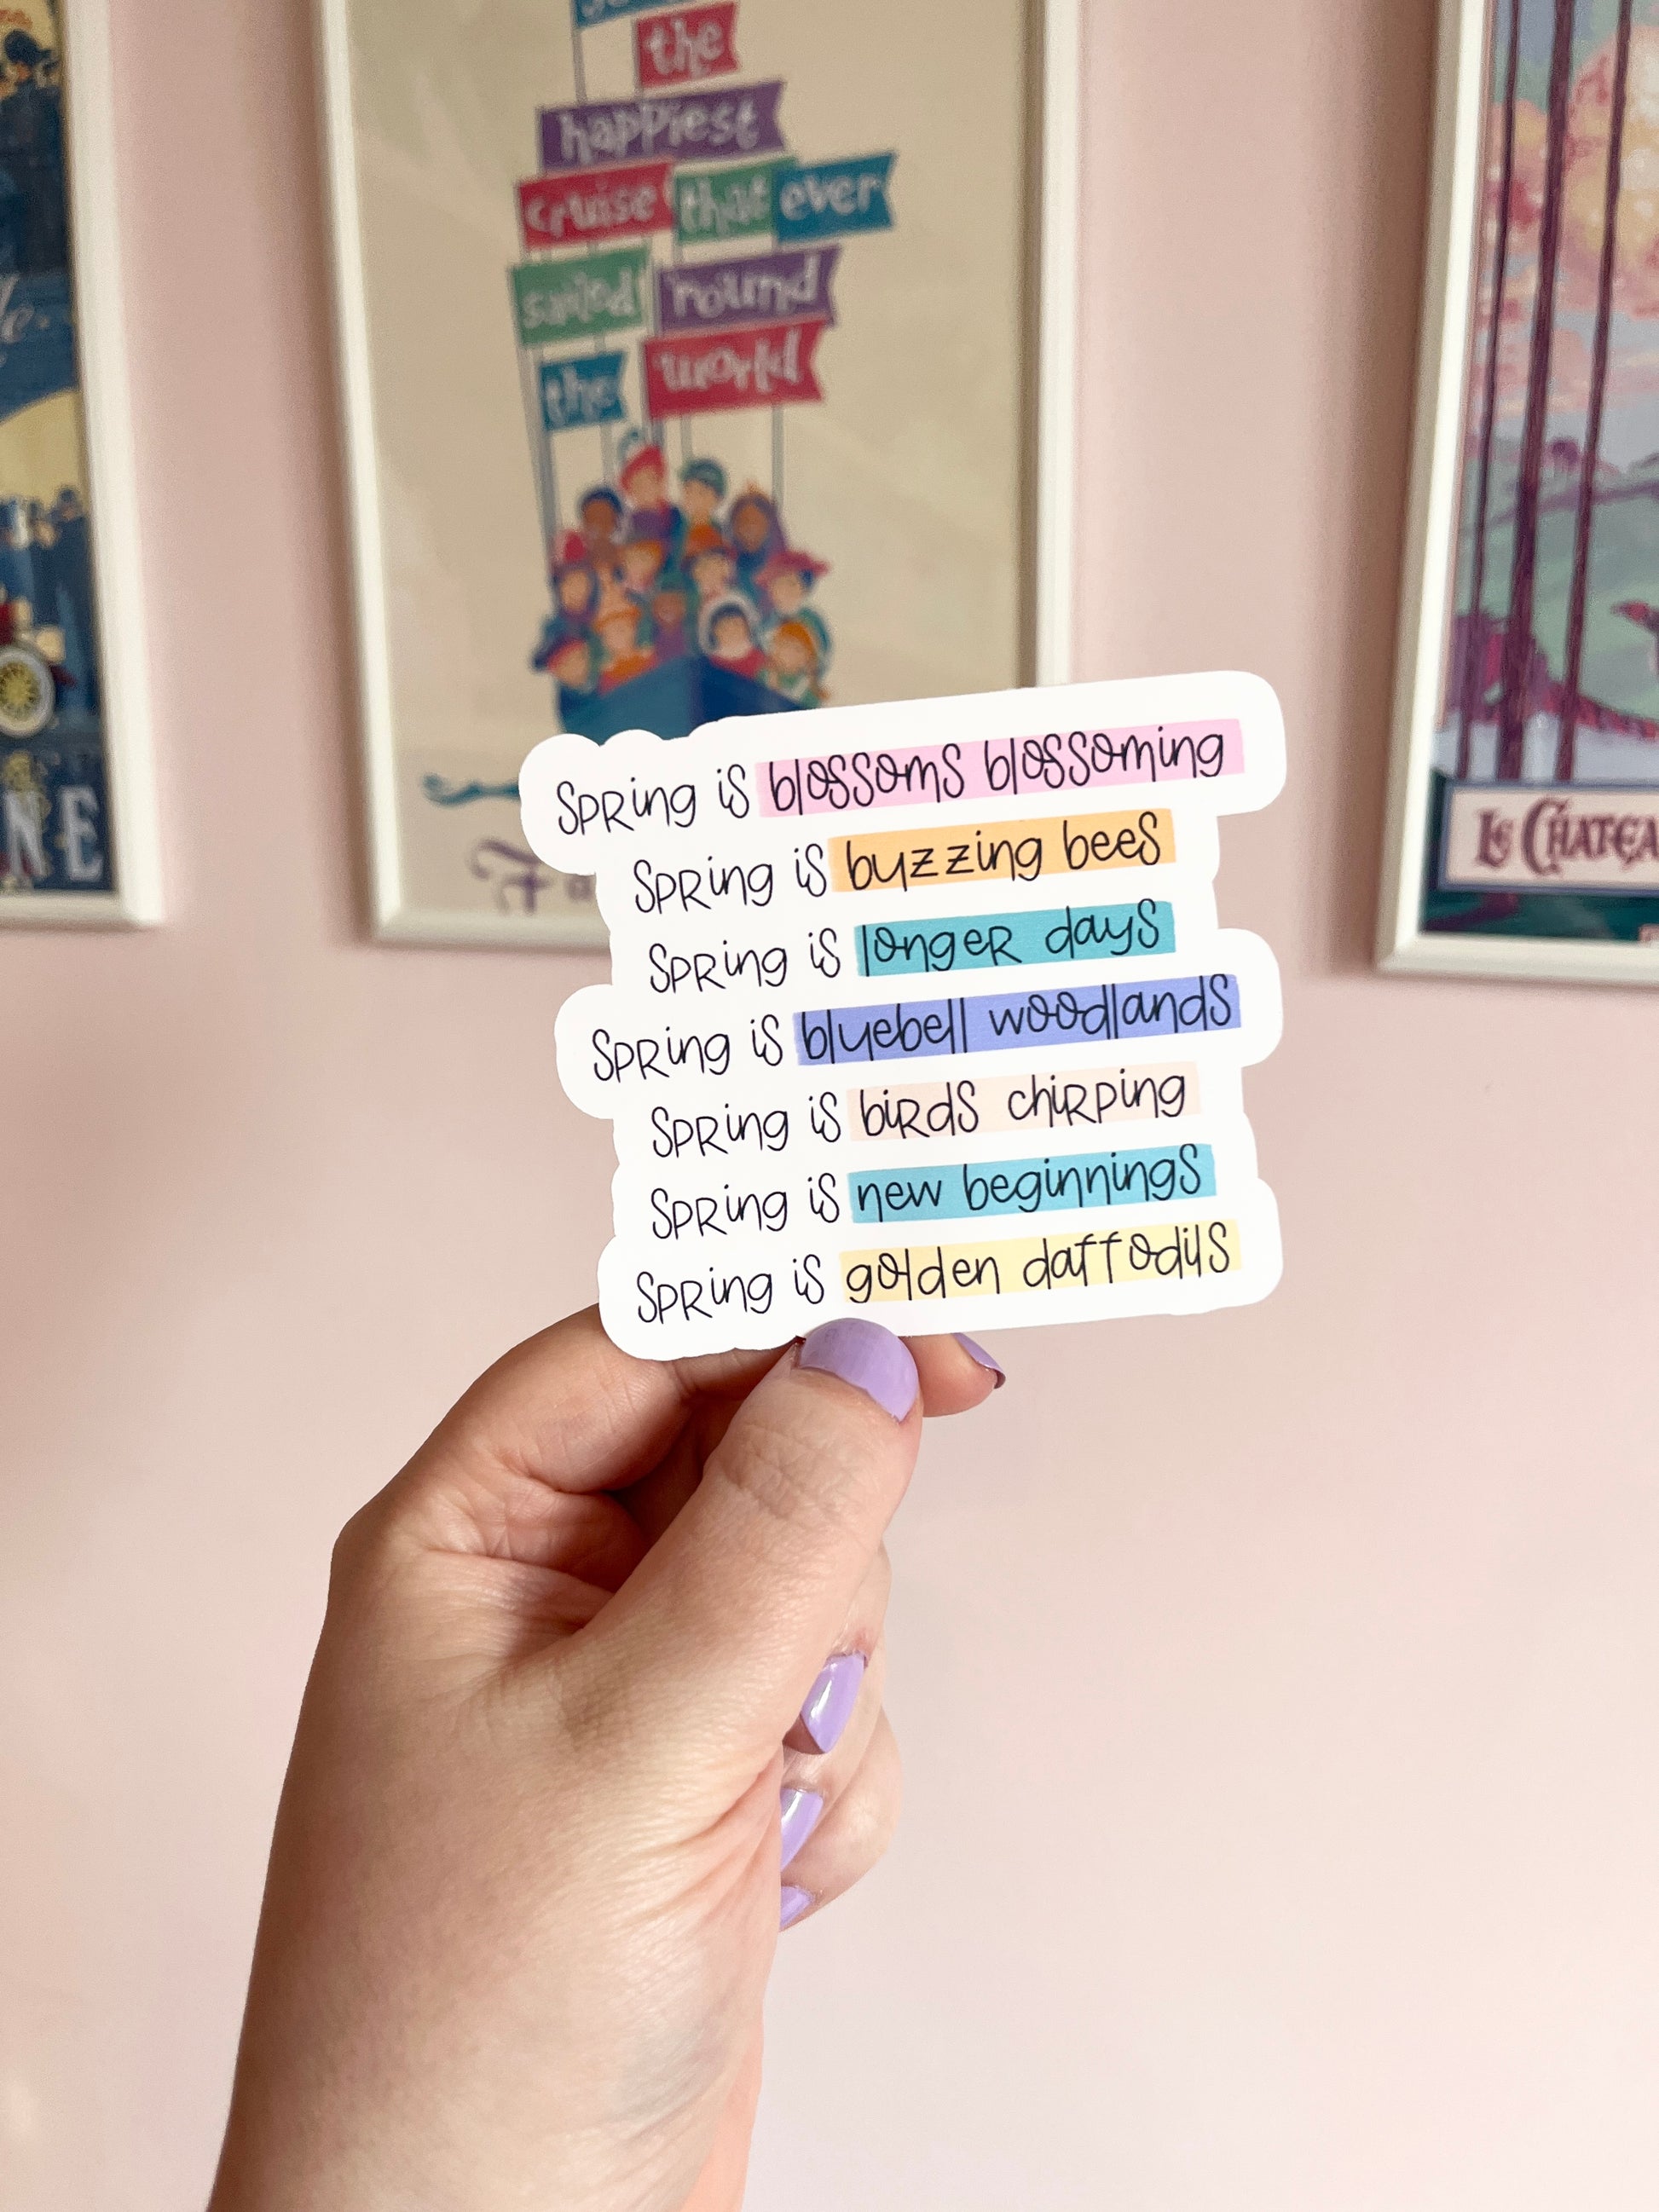 the
happiest
cruise that ever
sailed 'round
the world
NE
Le Chatea
Spring is blossoms blossoming
Spring is buzzing bees
Spring is longer days
Spring is bluebell woodlands
Spring is birds chirping
Spring is new beginnings
Spring is golden daffodils